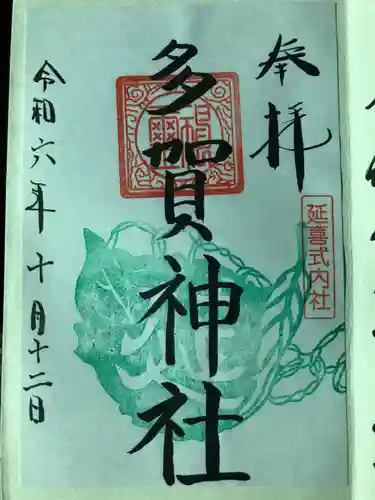 奉拝
延喜式内社
多賀神社
令和六年十月十二日